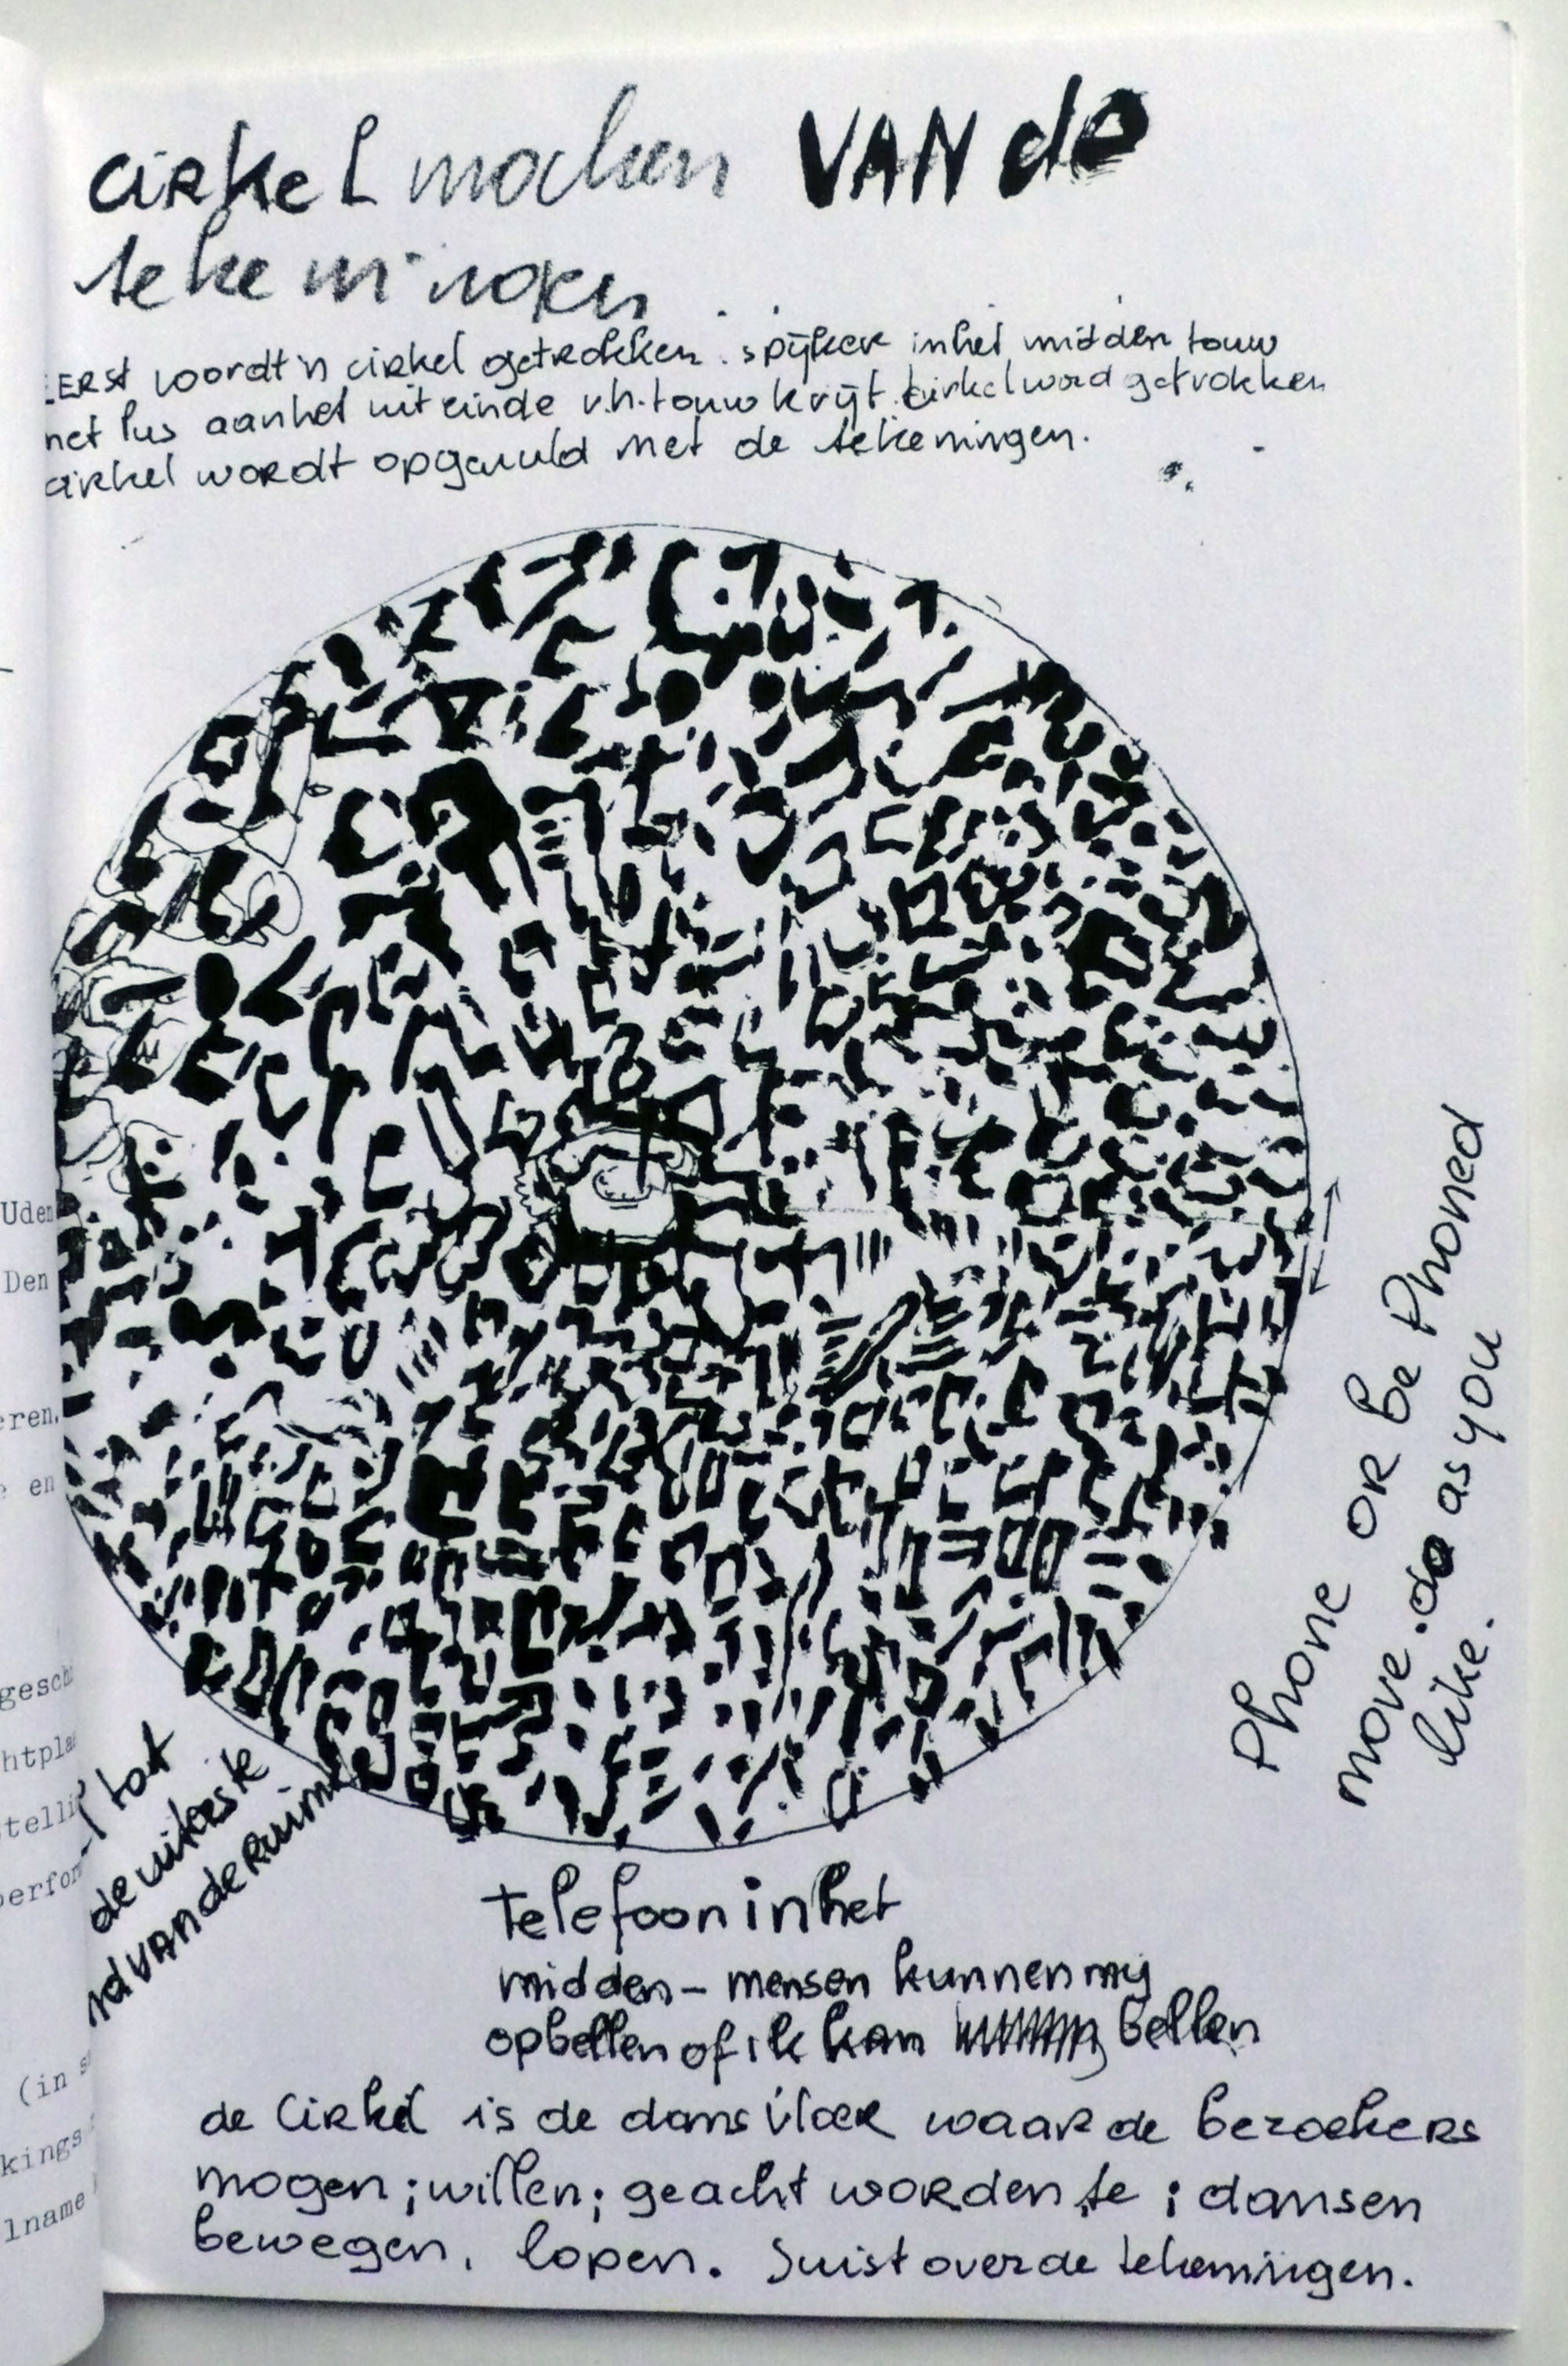 cirkel maken VAN de
tekeningen
EERST wordt 'n cirkel getrokken. spijker in het midden touw
met lus aan het uiteinde v.h. touw krijt. cirkel word getrokken
cirkel wordt opgevuld met de tekeningen.
Phone or be Phoned
move. do as you
like.
tot
de uiterste
rand VAN de Ruimte
Telefoon in het
midden – mensen kunnen mij
opbellen of ik kan bellen
de cirkel is de dansvloer waar de bezoekers
mogen; willen; geacht worden te; dansen
bewegen, lopen. Juist over de tekeningen.
Uden
Den
eren,
e en
gesch
htpla
telli
perfor
(in s
kings
lname